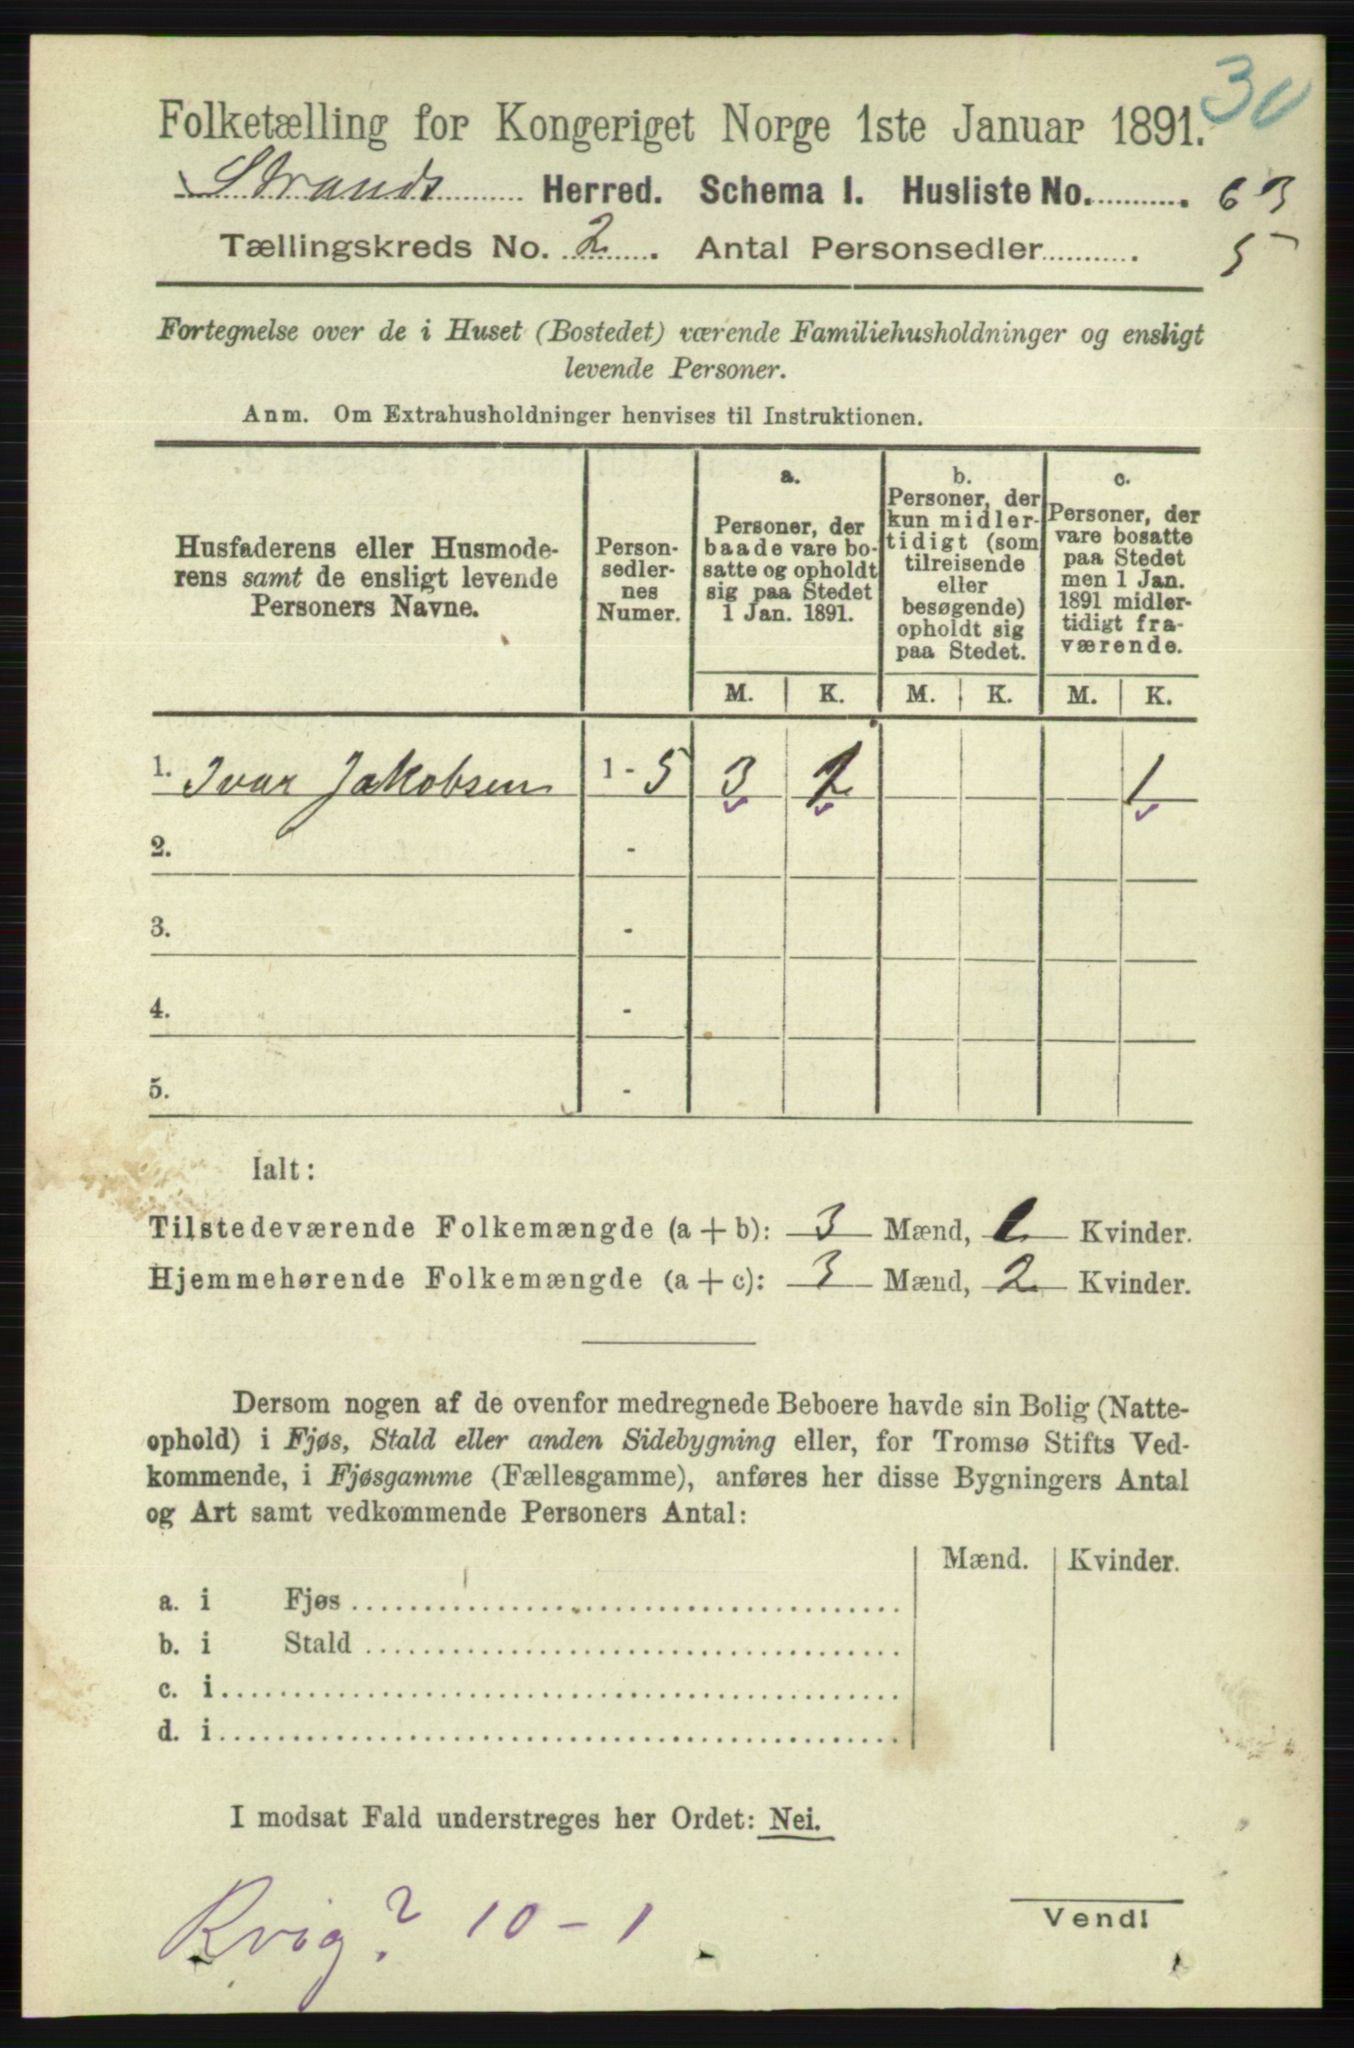 30
Folketælling for Kongeriget Norge 1ste Januar 1891.
Strands Herred. Schema I. Husliste No. 63
Tællingskreds No. 2. Antal Personsedler 5
Fortegnelse over de i Huset (Bostedet) værende Familiehusholdninger og ensligt
levende Personer.
Anm. Om Extrahusholdninger henvises til Instruktionen.
Husfaderens eller Husmode-
rens samt de ensligt levende
Personers Navne.
Person-
sedler-
nes
Numer.
a.
Personer, der
baade vare bo-
satte og opholdt
sig paa Stedet
1 Jan. 1891.
b.
Personer, der
kun midler-
tidigt (som
tilreisende
eller
besøgende)
opholdt sig
paa Stedet.
c.
Personer, der
vare bosatte
paa Stedet
men 1 Jan.
1891 midler-
tidigt fra-
værende.
M. K. M. K. M. K.
1. Ivar Jakobsen 1 - 5 3 1 1
2. -
3. -
4. -
5. -
Ialt:
Tilstedeværende Folkemængde (a + b): 3 Mænd, 1 Kvinder.
Hjemmehørende Folkemængde (a + c): 3 Mænd, 2 Kvinder.
Dersom nogen af de ovenfor medregnede Beboere havde sin Bolig (Natte-
ophold) i Fjøs, Stald eller anden Sidebygning eller, for Tromsø Stifts Ved-
kommende, i Fjøsgamme (Fællesgamme), anføres her disse Bygningers Antal
og Art samt vedkommende Personers Antal:
Mænd. Kvinder.
a. i Fjøs
b. i Stald
c. i
d. i
I modsat Fald understreges her Ordet: Nei.
10 - 1
Vend!